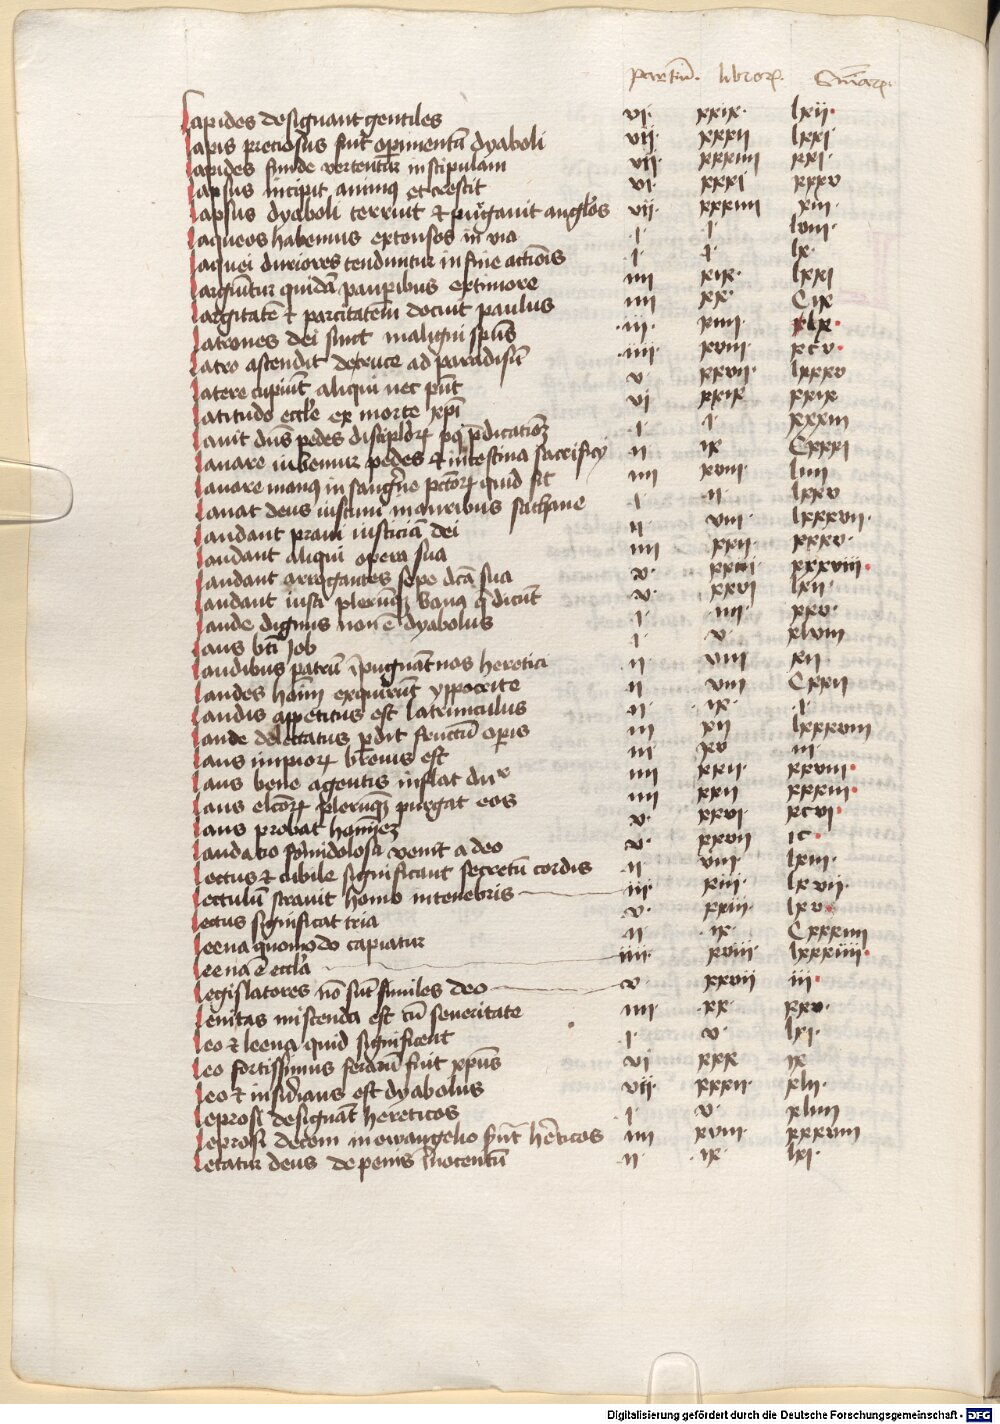 partiu̅. libroꝝ. Su̅maꝝ.
Lapides designant gentiles vi· xxix· lxii·
Lapis preciosus fuit opimentu̅ dyaboli vii· xxxii lxxi·
Lapides funde vertentur in stipulam vii· xxxiiii xxi·
Lapsus incipit animꝰ et crescit vi· xxxi xxxv
Lapsus dyaboli terruit & purgauit anglos vii· xxxiiii xiii·
Laqueos habemus extensos in via ·i· ·i· lviii·
Laquei duriores tenduntur in fine actio̅is ·i· ·i· lx·
Largiu̅tur quida̅ pauperibus ex timore iiii xix· lxxi
Largitate̅ & parcitatem docuit paulus iiii xx· Cix
Latrones dei sunt maligni sp̅us ·iii· xiiii· xlx·
Latro ascendit de cruce ad paradisu̅ ·iiii· xviii· xcv·
Latere cupiu̅t aliqui nec pn̅t v xxvii· lxxxv
Latitudo eccl̅e ex morte xp̅i vi xxix xxix
Lauit dn̅s pedes discipl̅oꝝ pꝰ p̅dicatio̅eꝫ ·i· ·i· xxxiii
Lauare iubemur pedes & intestina sacrificij ii ix· Cxxxi
Lauare manꝰ in sangui̅e pctoꝝ quid sit iiii xviii· liiii
Lauat deus iustum in manribus sathane ·i· ·ii· lxxv
Laudant praui iusticia̅ dei ii viii· lxxxvii·
Laudant aliqui opera sua iiii xxii· xxxv·
Laudant arrogantes sepe dc̅a sua v· xxiii xxxviii·
Laudant iusti pleru̅qꝫ bonꝰ q̅ dicu̅t v· xxvi lxii·
Laude dignus non e̅ dyabolus ·i· ·iiii· xxv·
Laus bt̅i Job ·i· v· xlviii
Laudibus patru̅ i̅pugna̅t nos heretici ·ii viii· xii
Laudes hoi̅m exquiru̅t yppocrite ·ii viii Cxxii
Laudis appetitus est latrunculus ·ii· ·ix· ·i·
Laude delectatus p̲dit fructu̅ op̲is iii xii lxxxviii
Laus impioꝝ breuis est iii xv iii·
Laus bene agentis inflat iiii xxii· xxviii·
Laus el̅coꝝ pleru̅qꝫ purgat eos iiii xxii xxxiii·
Laus probat ho̅i̅eꝫ v· xxvi xcvi·
Laudatio formidolosa venit a deo v· xxvii ic·
Lectus & cubile significant secretu̅ cordis ii viii· lxiii·
Lectulu̅ strauit homo in tenebris iii· xiii· lxvii·
Lectus significat tria v· xxiii· lxv·
Leena quomodo capiatur ii· ix· Cxxxiiii
Leena e̅ eccl̅a iiii· xviii· lxxxiiii·
Legislatores no̅ su̅t similes deo v· xxvii iii·
Lenitas miscenda est cu̅ seueritate iiii xx· xxv·
Leo & leena quid significent ·i· v· lxi·
Leo fortissimus feraru̅ fuit xp̅us vi xxx ix
Leo & insidians est dyabolus vii· xxxii· xlii·
Leprosi designa̅t hereticos ·i· v· xliiii
Leprosi decem in ewangelio sunt hereticos iiii xviii· xxxviii
Letatur deus de penis innocentu̅ ·ii· ·ix· lxi·
Digitalisierung gefördert durch die Deutsche Forschungsgemeinschaft - DFG